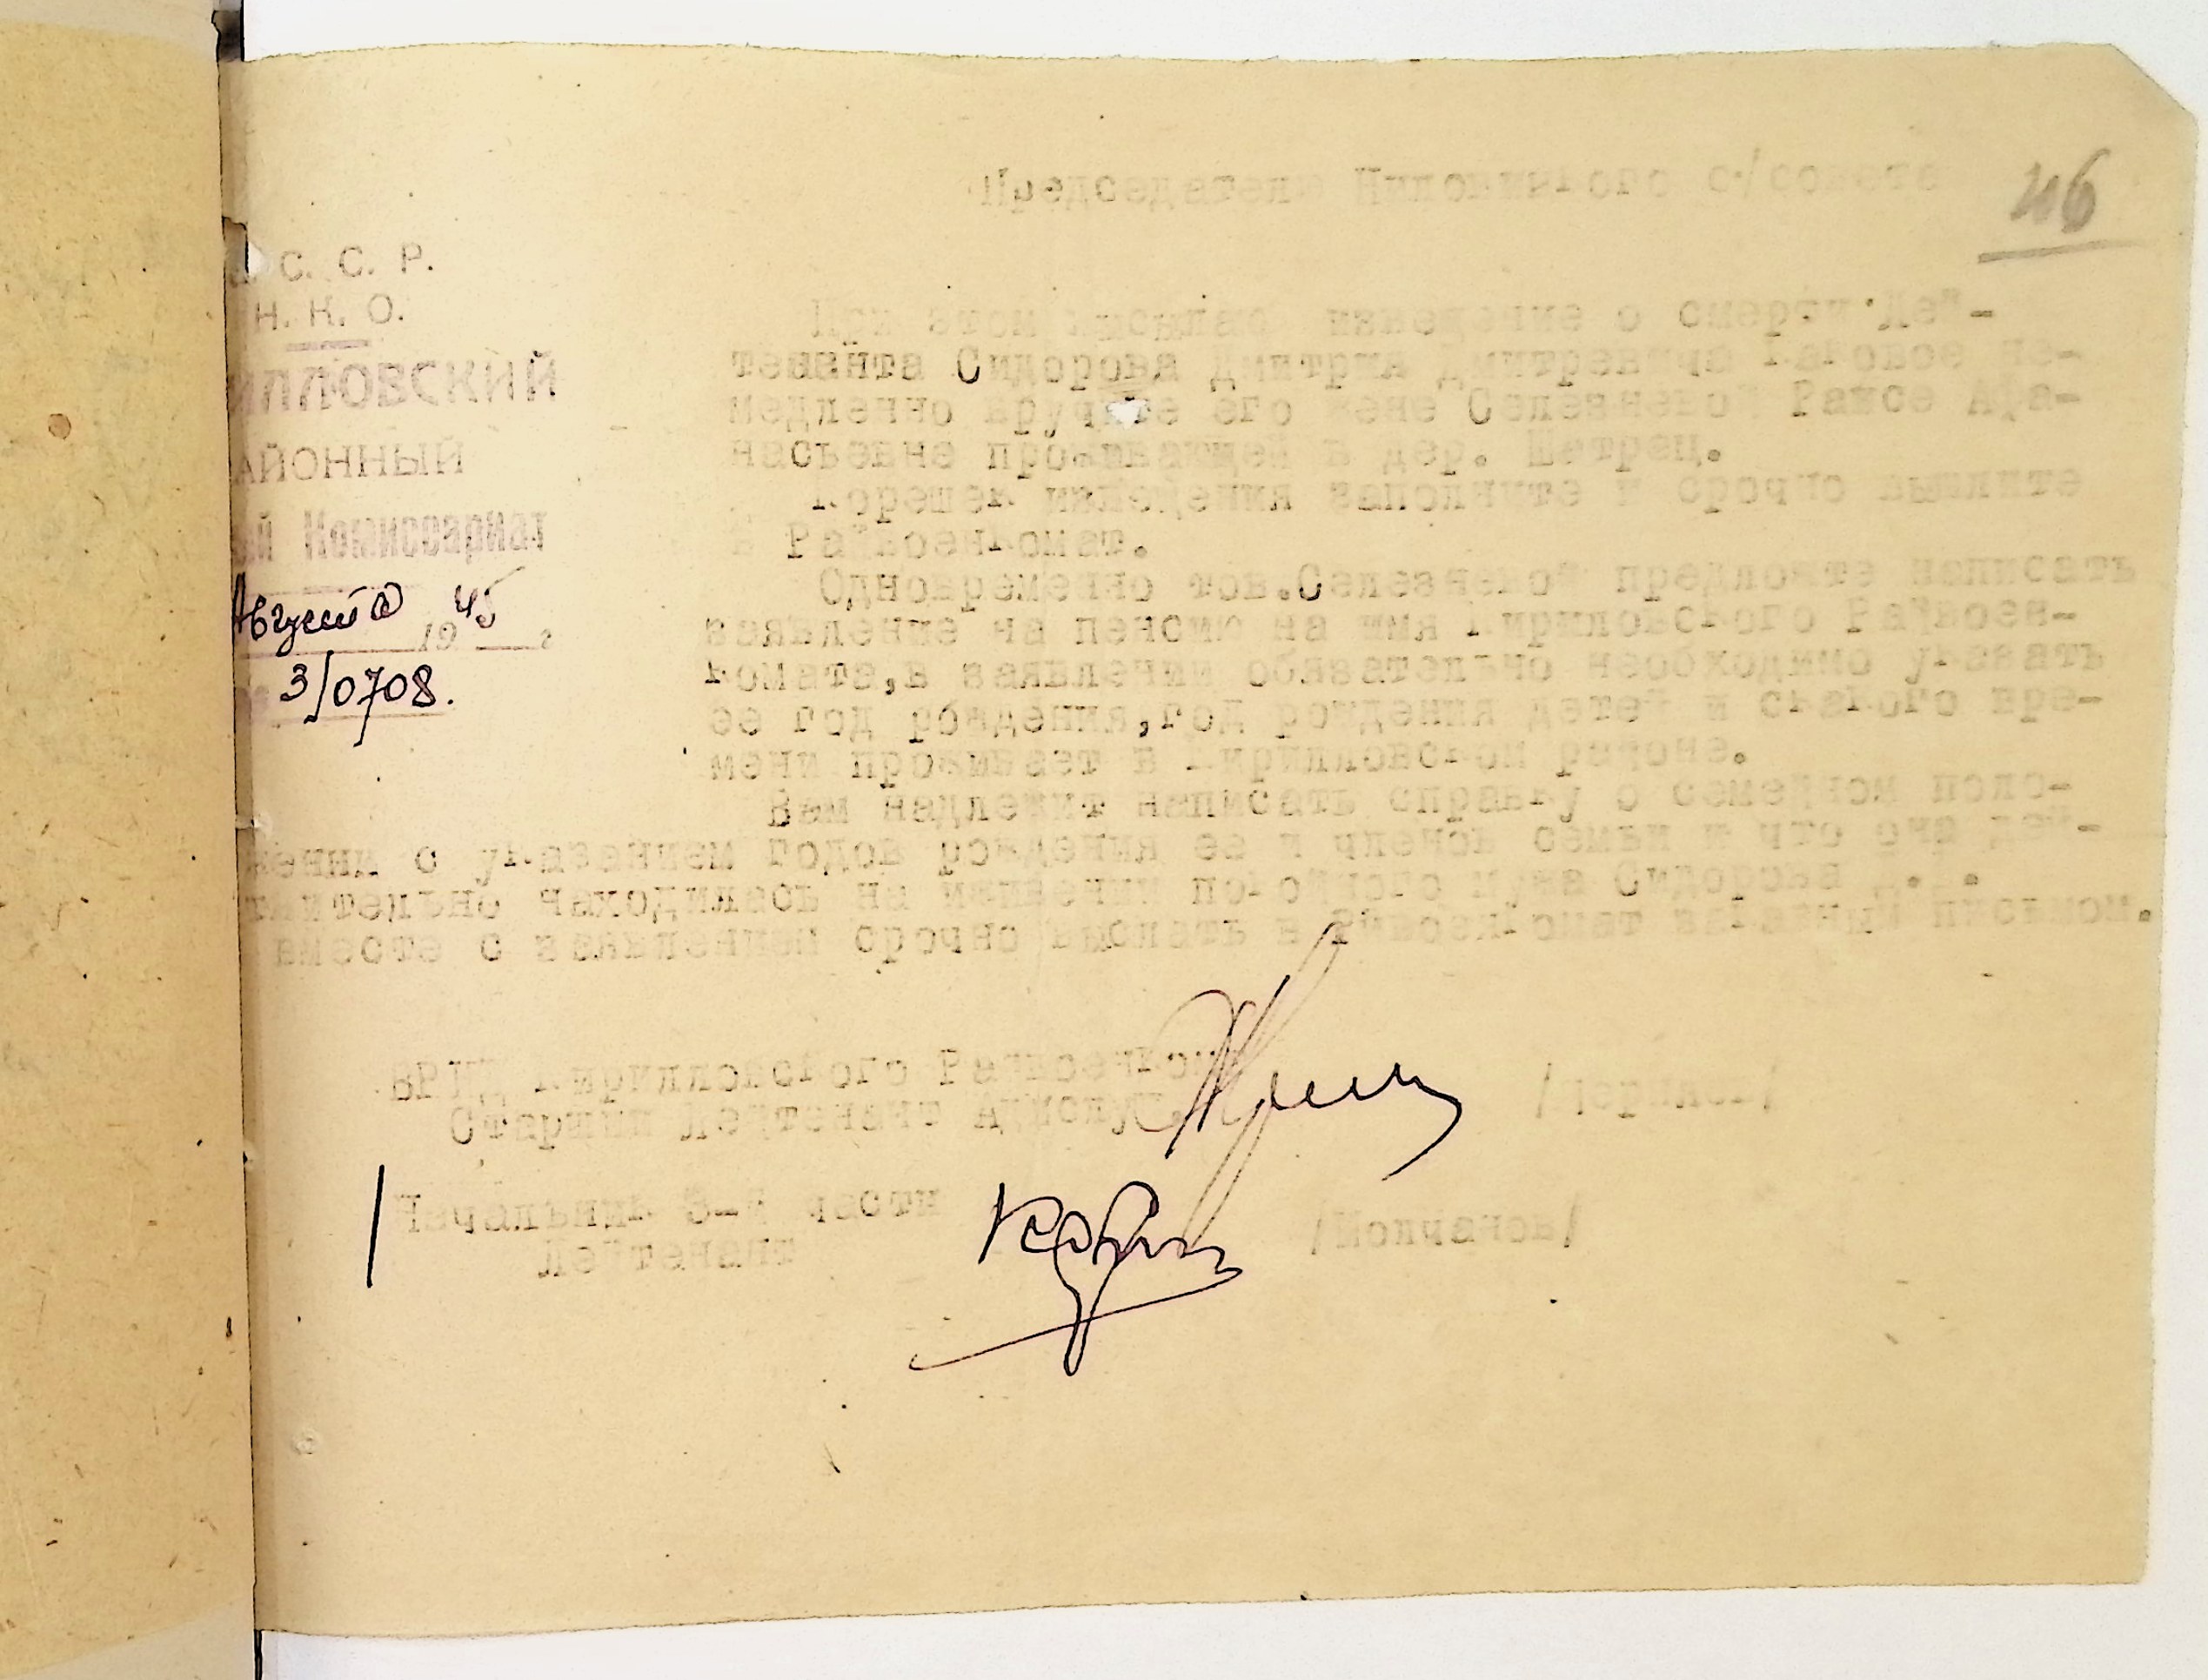 Председателю Ниловицкого с/совета
46
С. С. Р.
Н. К. О.
ИЛЛОВСКИЙ
АЙОННЫЙ
ый Комиссариат
Августа 1945 г
3/0708.
При этом высылаю извещение о смерти Лей-
тенанта Сидорова Дмитрия Дмитревича каковое не-
медленно вручите его жене Селезневой Раисе Афа-
насьевне проживающей в дер. Шатрец.
Корешек изведения заполните и срочно вышлите
в Райвоенкомат.
Одновременно тов.Селезневой предложте написать
заявление на пенсию на имя Кириловского Райвоен-
комата,в заявлении обязательно необходимо указать
ее год рождения,год рождения детей и скакого вре-
мени проживает в Кирилловском районе.
Вам надлежит написать справку о семейном поло-
жении с указанием годов рождения ее и членов семьи и что она дей-
ствительно находилась на иждвении покойного мужа Сидорова Д.Д.
вместе с заявлением срочно выслать в Райвоенкомат заказным письмом.
ВРИД Кирилловского Райвоенкома
Старший Лейтенант Адм.служ.
Начальник 3-й части
/Молчанов/
Лейтенант